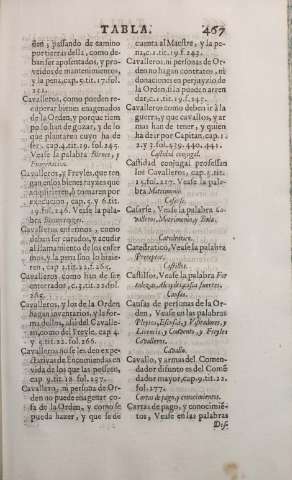 TABLA. 467
den, passando de camino
por tierras della, como de-
ban ser aposentados, y pro-
veidos de mantenimientos,
y la pena, cap. 5. tit. 17. fol.
Cavalleros, como pueden re-
cuperar bienes enagenados
de la Orden, y porque tiem-
po los han de gozar, y de lo
que plantaren cuyo ha de
ser, cap. 4. tit. 19. fol. 245.
Vease la palabra Bienes, y
Cavalleros, y Freyles, que ten-
gan en los bienes rayes que
adquirieren, ò tomaren por
execucion, cap. 5. y 6. tit.
19. fol. 246. Vease la pala-
bra
Cavalleros enfermos, como
deban ser curados, y acudir
al llamamiento de los enfer-
mos, y la pena sino lo hizie-
ren, cap. 2. tit. 22. fol. 265.
Cavalleros como han de ser
enterrados, c. 3. tit. 22. fol.
265.
Cavalleros, y los de la Orden
hagan inventarios, y la for-
ma dellos, assi del Cavalle-
ro, como del Freyle, cap. 4.
y 5. tit. 22. fol. 266.
Cavalleros no se les den exp-
ectativas de Encomiendas en
vida de los que las posseen,
cap. 9. tit. 18. fol. 237.
Cavallero, ni persona de Or-
den no puede enagenar co-
sa de la Orden, y como se
pueda hazer, y que se dé
cuenta al Maestre, y la pe-
na, c. 1. tit. 19. f. 243.
Cavalleros, ni personas de Or-
den no hagan contratos, ni
donaciones en perjuyzio de
la Orden, ni la pueden arren-
dar, c. 1. tit. 19. f. 245.
Cavalleros como deben ir à la
guerra, y que cavallos, y ar-
mas han de tener, y quien
ha de ir por Capitan, cap. 1.
2. y 3. fol. 439. 440. 441.
Castidad conjugal.
Castidad conjugal professan
los Cavalleros, cap. 5. tit.
15. fol. 217. Vease la pala-
bra Matrimonio.
Casarse.
Casarse, Vease la palabra Ca-
vallero, Matrimonio, y
Catedratico.
Catedratico, Vease la palabra
Preceptor.
Castillos.
Castillos, Vease la palabra For-
talezas, Alcaydes, casas fuertes.
Causas.
Causas de personas de la Or-
den, Vease en las palabras
Pleytos, Visitadores,
y Freyles
Cavalleros.
Cavallo.
Cavallo, y armas del Comen-
dador difunto es del Comē-
dador mayor, cap. 9. tit. 22.
fol. 277.
Cartas de pago, y conocimientos.
Cartas de pago, y conocimiē-
tos, Vease en las palabras